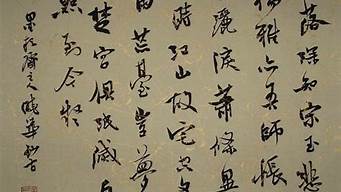 落深知宋玉悲
儒雅亦吾師悵
灑淚蕭條異
時江山故宅空
雨荒臺豈夢
楚宮俱泯滅舟
點到今疑